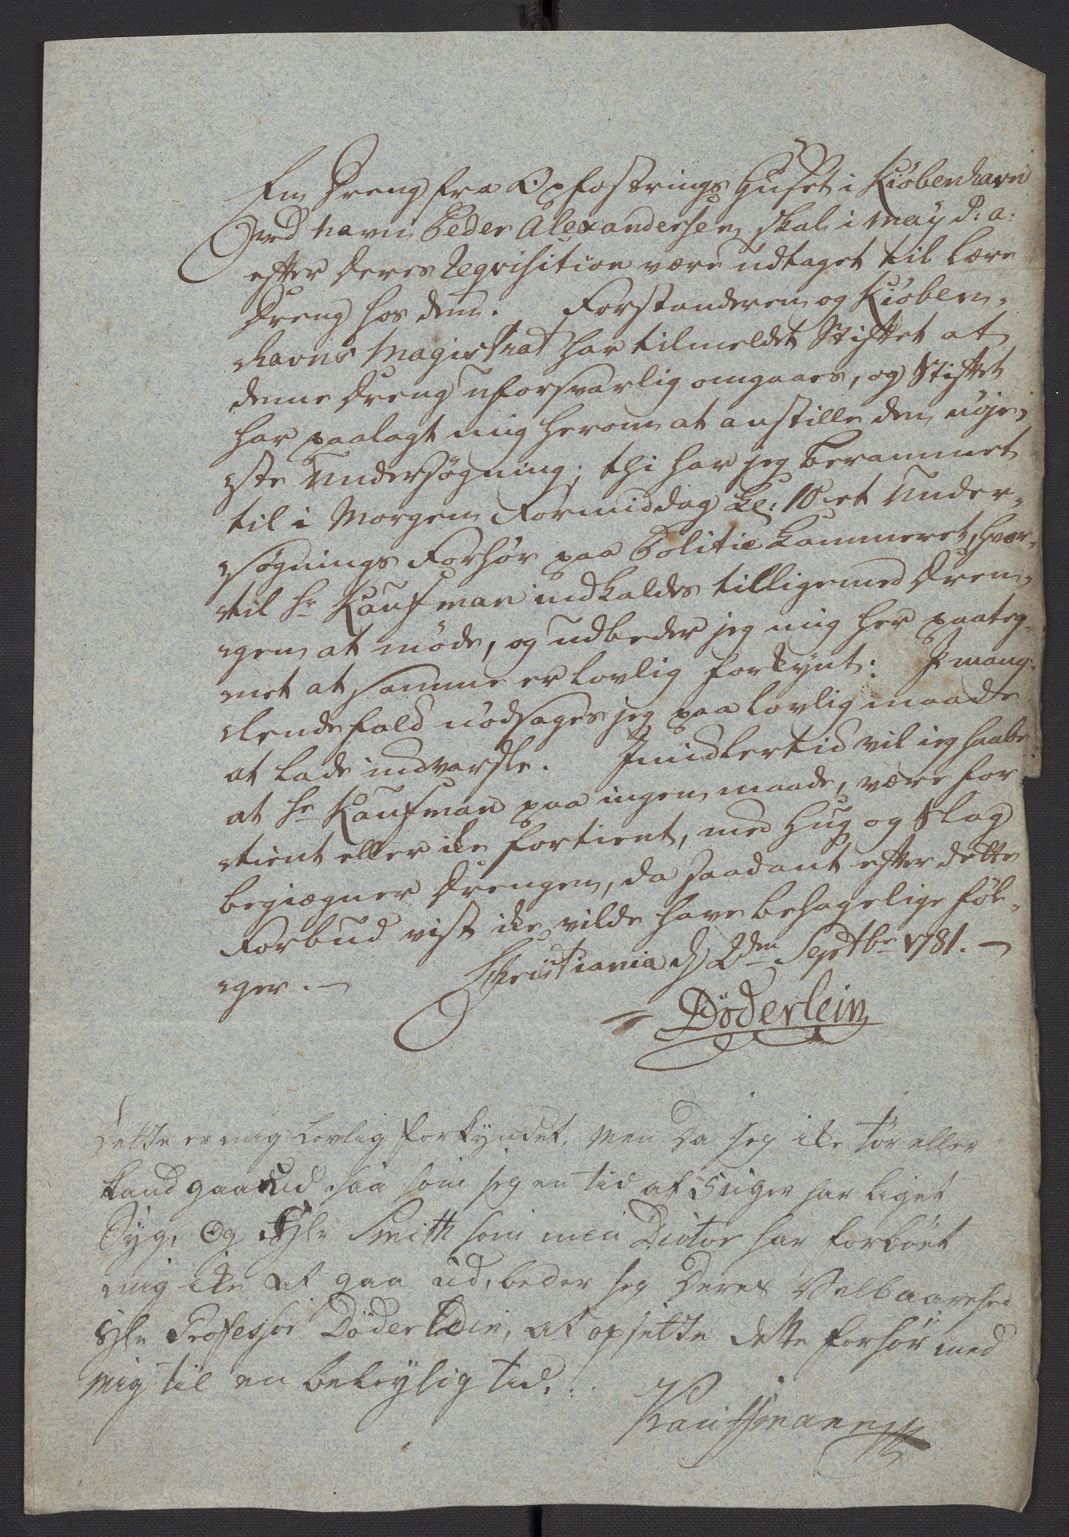 En Dreng fra Opfostrings Huset i Kiøbenhavn
ved Navn Peder Alexandersen, skal i May d: a:
efter Deres Reqvisition være udtaget til Lære
Dreng hos dem. Forstanderen og Kiøben-
havns Magistrat har tilmeldt Stiftet at
denne Dreng uforsvarlig omgaaes, og Stiftet
har paalagt mig herom at anstille den nøje-
ste Undersøgning; thi har jeg berammet
til i Morgen Formiddag Kl: 10 et Under-
søgnings Forhør paa Politie Kammeret, hvor-
til Hr Kaufman indkaldes tilligemed Dren-
gen at møde, og udbeder jeg mig her paateg-
net at samme er lovlig forkynt: I mang-
lende fald nødsages jeg paa lovlig maade
at lade indvarsle. Imidlertid vil jeg haabe
at Hr Kaufman paa ingen maade, være for-
tient eller ike fortient, med Hug og Slag
begiægner Drengen, da saadant efter dette
Forbud vist ike vilde have behagelige Føl-
ger. — Christiania d 2den Septbr 1781. —
Döderlein
Dette er mig Lovlig forkyndet, men Da jeg ike tør eller
kand gaa ud saa som jeg en tid af 5 uger har liget
Syg, og Hr Smith som min Docktor har forbøet
mig ike at gaa ud, beder jeg Deres Velbaarenhed
Hr Professor Döderlein, at opsette dette forhør med
mig til en beleylig tid.
Kauffmann